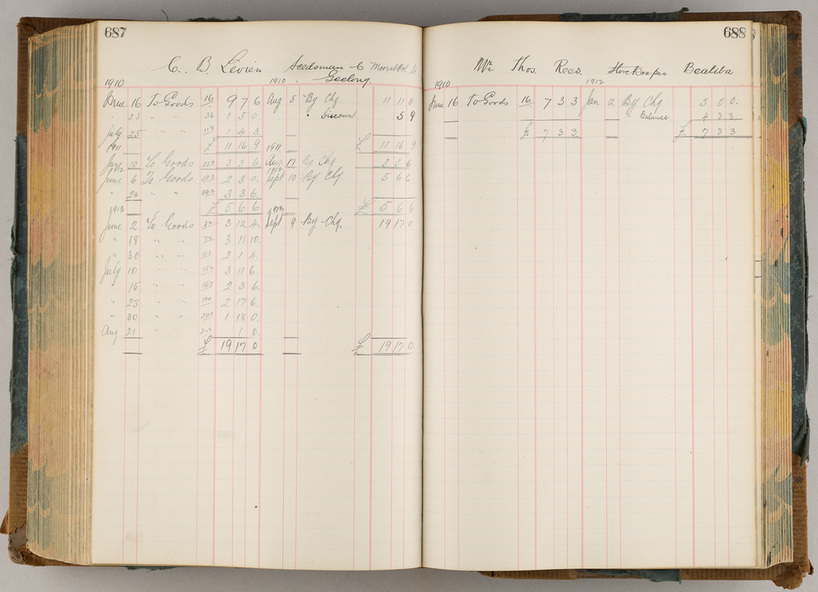 687
C. B. Levien Seedsman
Geelong
1910 1910
June 16 To Goods 16 9 7 6 Aug 5 By Chq. 11 11 0
" 23 " " 34 1 5 0 " Discount 5 9
July 25 " " 1 4 3
1911 £ 11 16 9 1911 £ 11 16 9
June 10 To Goods 3 3 6 Aug 17 By Chq 3 3 6
1912 1912
June 6 To Goods 2 3 0 Sept 10 By Chq 5 6 6
" 24 " " 3 3 6
1913 £ 5 6 6 1913 £ 5 6 6
June 2 To Goods 3 12 4 Sept 9 By Chq. 19 17 0
" 18 " " 3 11 10
" 30 " " 2 1 4
July 10 " " 3 11 6
" 15 " " 2 3 6
" 23 " " 2 17 6
" 30 " " 1 18 0
Aug 21 " " 1 0
£ 19 17 0 £ 19 17 0
688
Mr Thos. Rees. Storekeeper Bealiba
1910 1912
June 16 To Goods 16 7 3 3 Jan 2 By Chq 3 0 0
" Balance 4 3 3
£ 7 3 3 £ 7 3 3